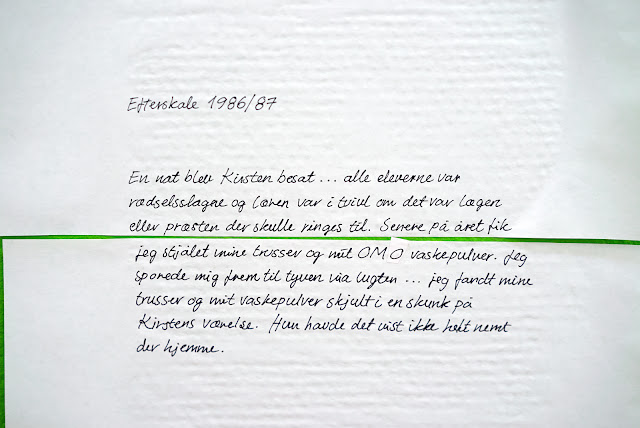 Efterskole 1986/87
En nat blev Kirsten besat... alle eleverne var
rædselsslagne og læren var i tvivl om det var lægen
eller præsten der skulle ringes til. Senere på året fik
jeg stjålet mine trusser og mit OMO vaskepulver. Jeg
sporede mig frem til tyven via lugten... jeg fandt mine
trusser og mit vaskepulver skjult i en skunk på
Kirstens værelse. Hun havde det vist ikke helt nemt
der hjemme.